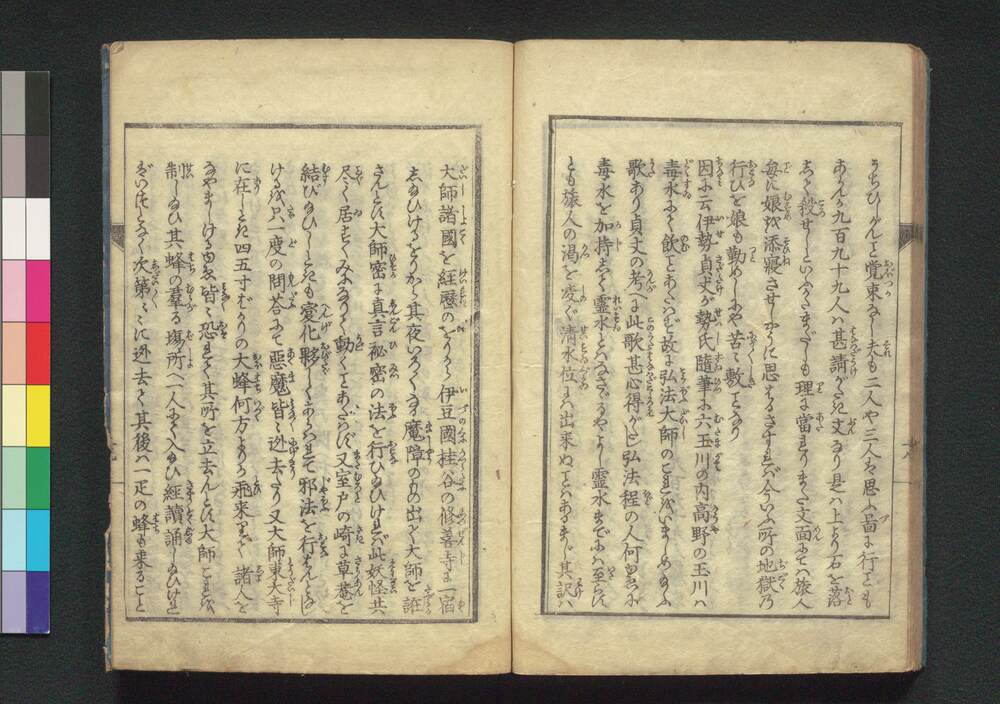 うちひしんと覚束なし夫も二人や三人は思ふ旨に行とも
あらんが九百九十九人ハ甚請がたき文なり是ハ上より石を落
して殺せしといふならまだしも理に當れりまた文面にてハ旅人
毎に娘を添寝させしからに思はるさすれバ今いふ所の地獄乃
行ひを娘も勤めしにや苦々敷ことなり
因に云伊勢貞丈が勢氏隨筆に六玉川の内高野の玉川ハ
毒水にて飲ことあたはず故に弘法大師のこれをいましめ給ふ
歌あり貞丈の考へに此歌甚心得がたし弘法程の人何ゆゑに
毒水を加持して靈水とハなさざるやよし靈水までにハ至らず
とも旅人の渇を凌ぐ清水位にハ出来ぬことハあるまじ其訳ハ
大師諸國を経歴のをりから伊豆國桂谷の修善寺に一宿
し給ひけるをりから其夜いろ〳〵なる魔障のもの出て大師を誑
さんとす大師密に真言秘密の法を行ひ給ひけれバ此妖怪共
尽く居すくみになりて動くことあたはず又室戸の崎に草菴を
結び給ひしときも變化夥しくあらはれて邪法を行はんとし
けるを只一度の問答にて悪魔皆〻迯去たり又大師東大寺
に在しとき四五寸ばかりの大蜂何方よりか飛来りて諸人を
なやましけるゆゑ皆〻恐れて其所を立去んとす大師これを
制し給ひ其蜂の羣る場所へ一人にて入給ひ經讀誦し給ひけれ
ばいつとなく次第〳〵に迯去て其後ハ一疋の蜂も来ること